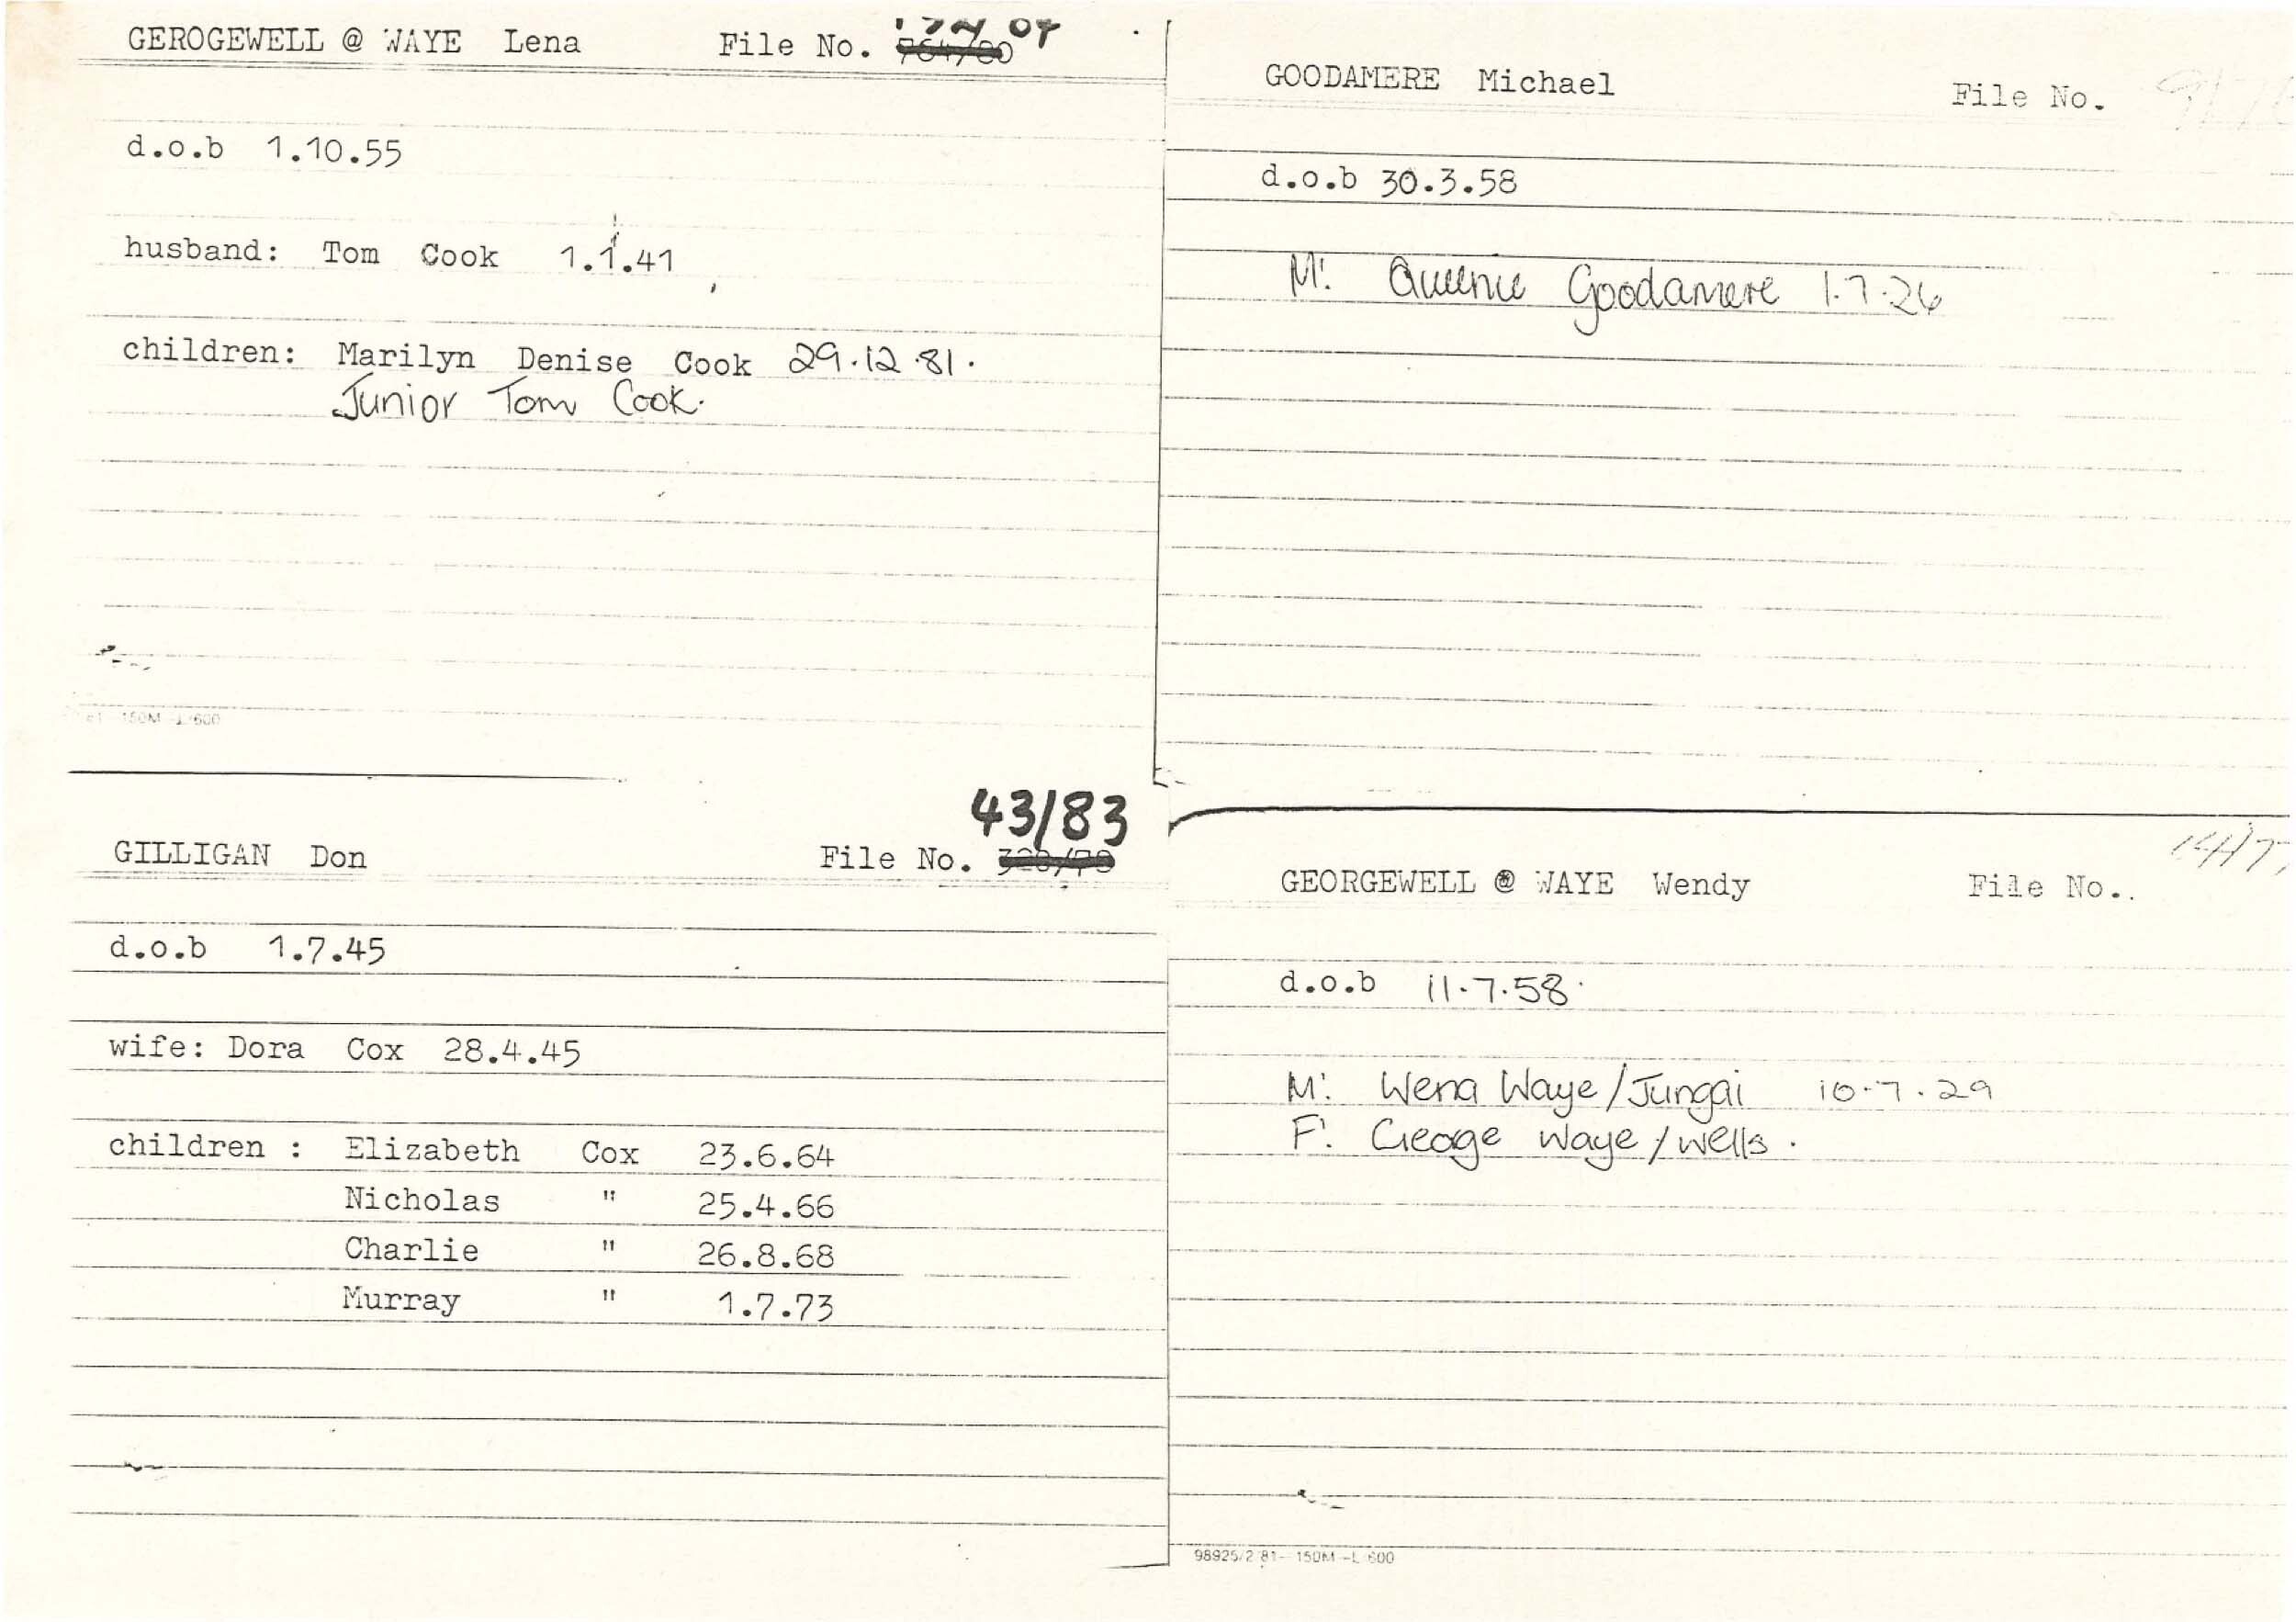 GEROGEWELL @ WAYE Lena File No.
d.o.b 1.10.55
husband: Tom Cook 1.1.41
children: Marilyn Denise Cook 29.12.81.
Junior Tom Cook.
GOODAMERE Michael File No.
d.o.b 30.3.58
M: Queenie Goodamere 1.7.26
43/83
GILLIGAN Don File No.
d.o.b 1.7.45
wife: Dora Cox 28.4.45
children : Elizabeth Cox 23.6.64
Nicholas " 25.4.66
Charlie " 26.8.68
Murray " 1.7.73
GEORGEWELL @ WAYE Wendy File No..
d.o.b 11.7.58.
M: Wena Waye/Jungai 10.7.29
F: George Waye/Wells.
98925/2 81-150M-L 600